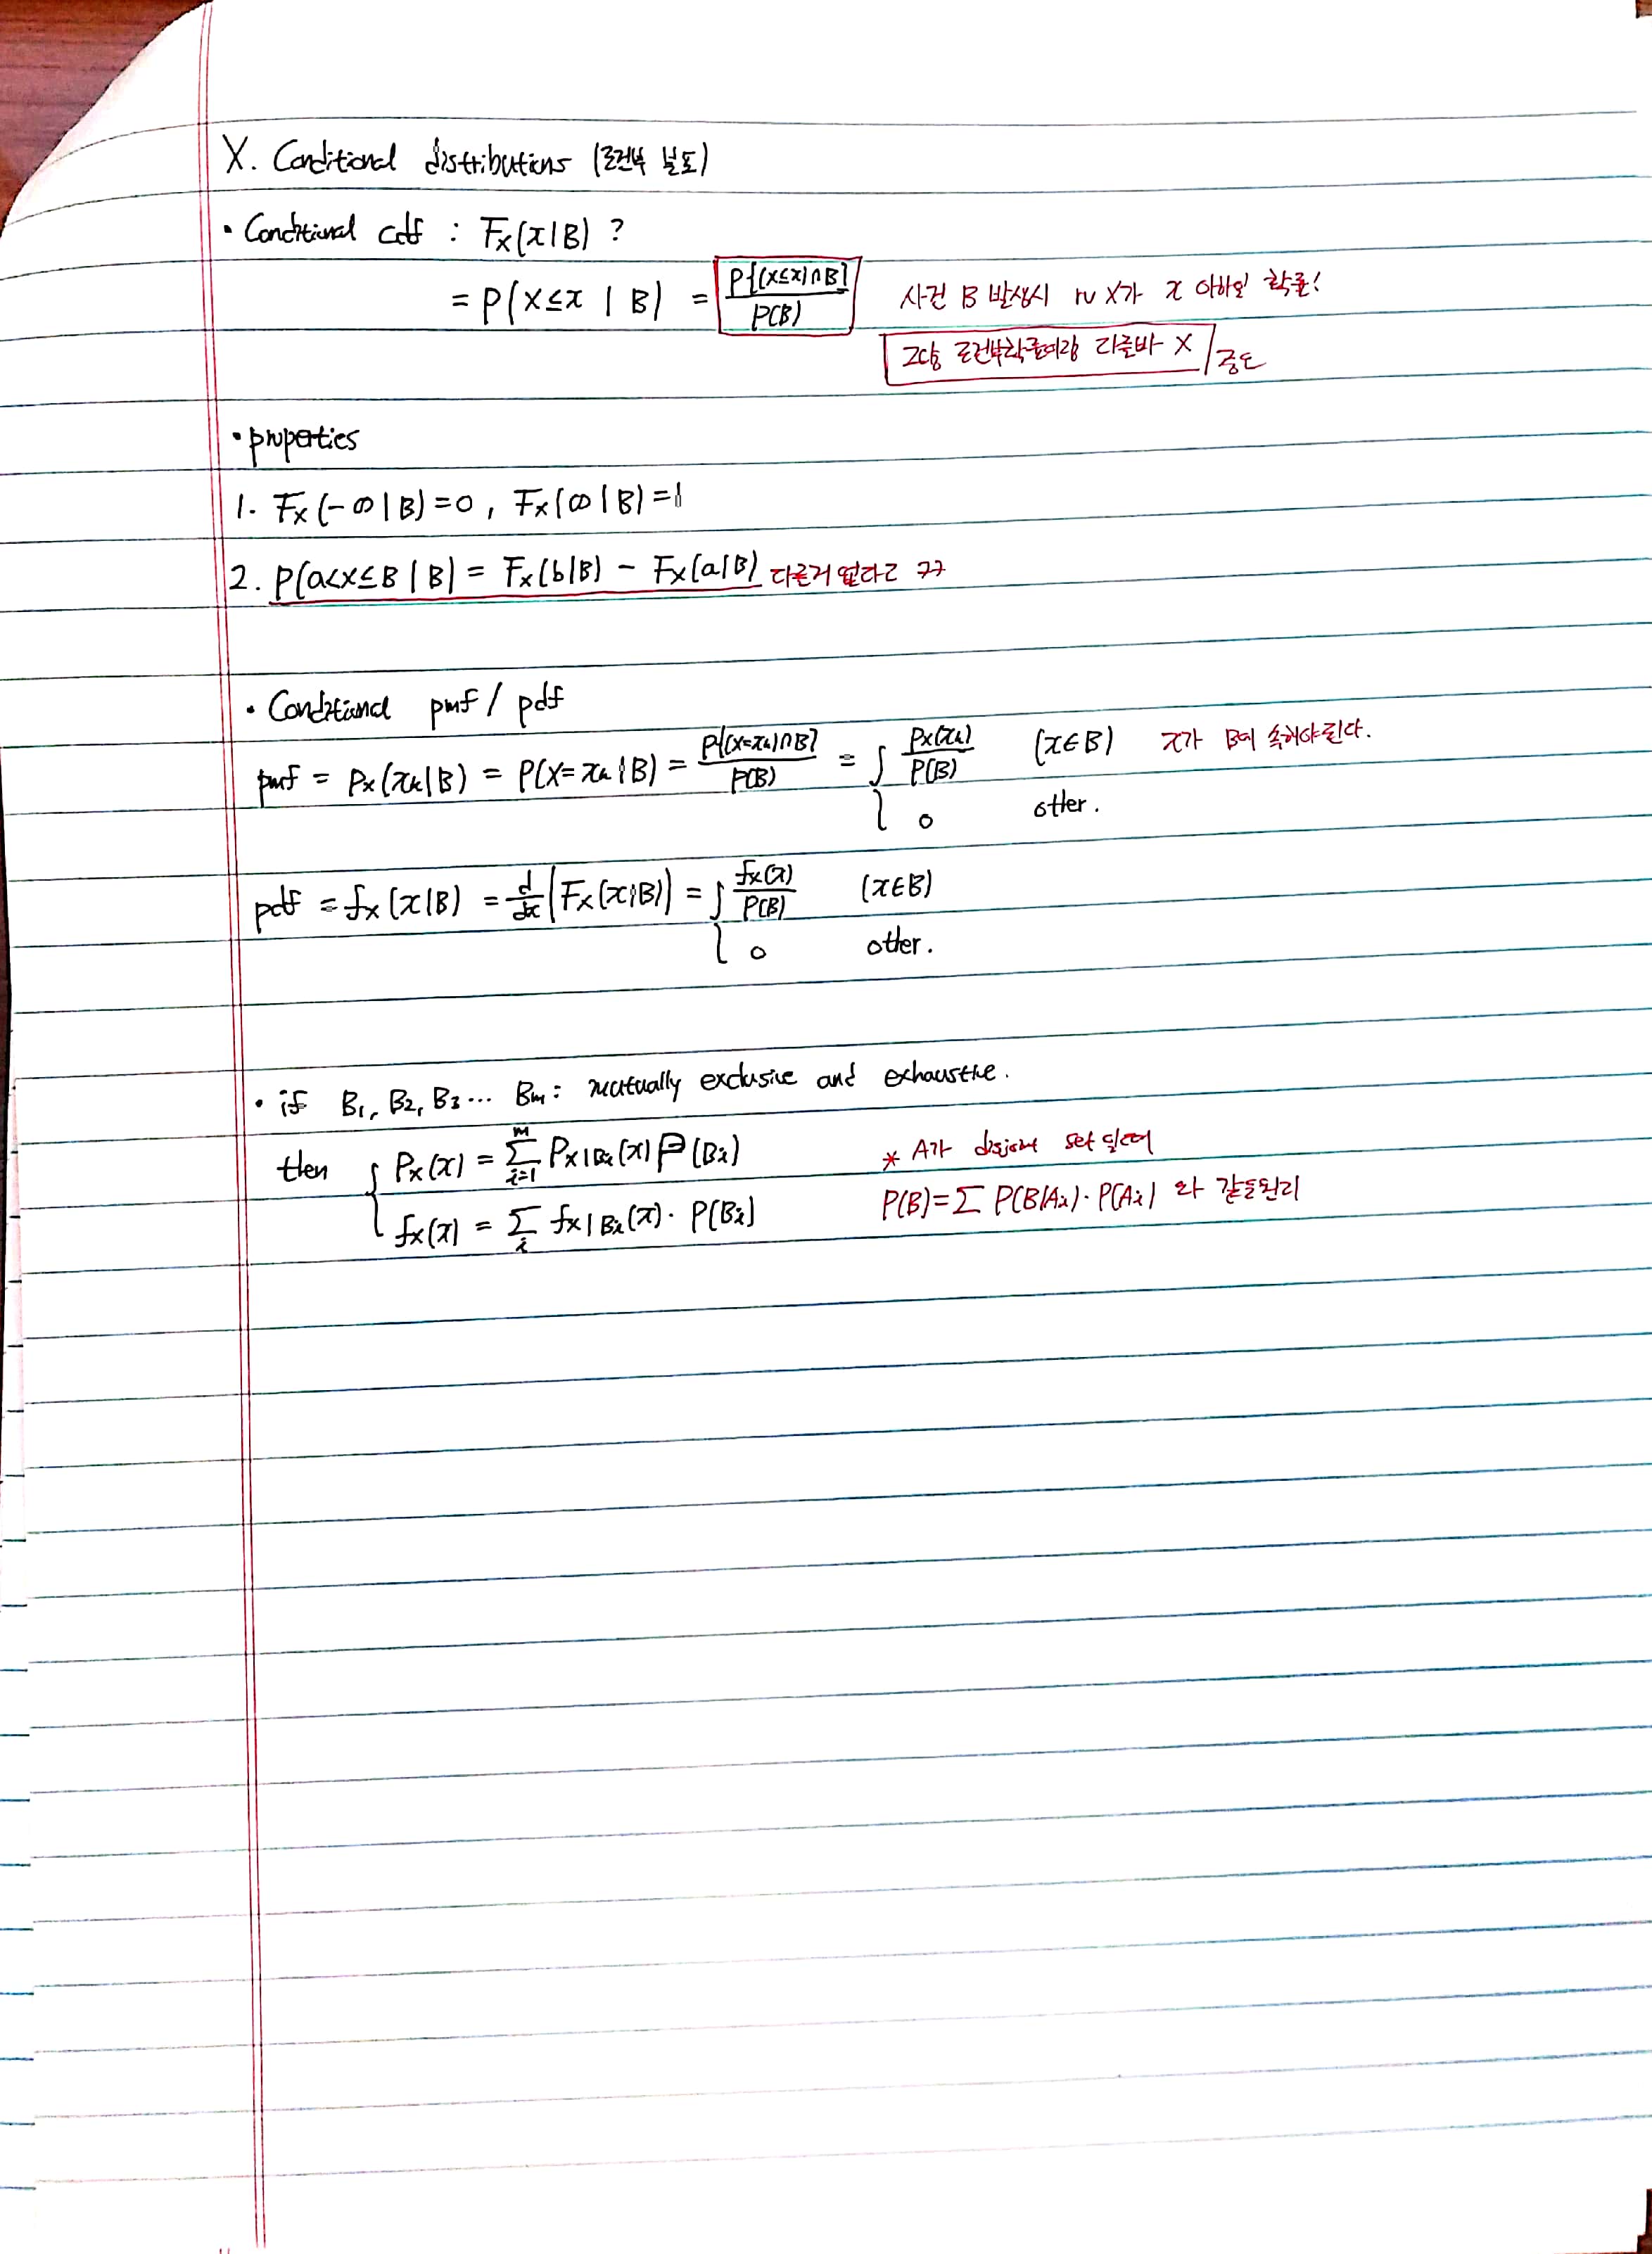 X. Conditional distributions (조건부 분포)
• Conditional cdf : Fx(x|B) ?
= P(X≤x | B) = P{(X≤x)∩B} / P(B) 사건 B 발생시 rv X가 x 이하일 확률!
그냥 조건부확률이랑 다를바 X / 중도
• properties
1. Fx(-∞|B)=0, Fx(∞|B)=1
2. P(a<X≤B | B) = Fx(b|B) - Fx(a|B) 다를거 없다고 ㅋㅋ
• Conditional pmf / pdf
pmf = Px(xk|B) = P(X=xk|B) = P{(X=xk)∩B} / P(B) = { Px(xk) / P(B) (x∈B) x가 B에 속해야된다.
0 other.
pdf = fx(x|B) = d/dx (Fx(x|B)) = { fx(x) / P(B) (x∈B)
0 other.
• if B1, B2, B3... Bm: mutually exclusive and exhaustive.
then { Px(x) = Σ(i=1, m) Px|Bi(x) P(Bi) * A가 disjoint set일때
fx(x) = Σ(i) fx|Bi(x) · P(Bi) P(B)=Σ P(B|Ai)·P(Ai) 와 같은원리